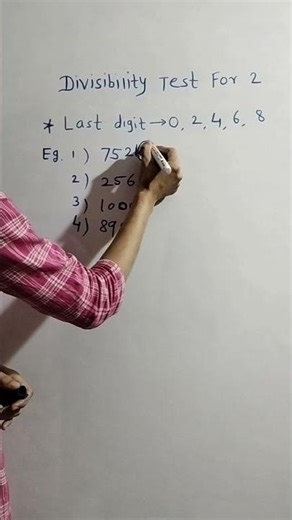 Divisibility Test For 2
* Last digit → 0, 2, 4, 6, 8
Eg. 1) 752
2) 256
3) 100
4) 89